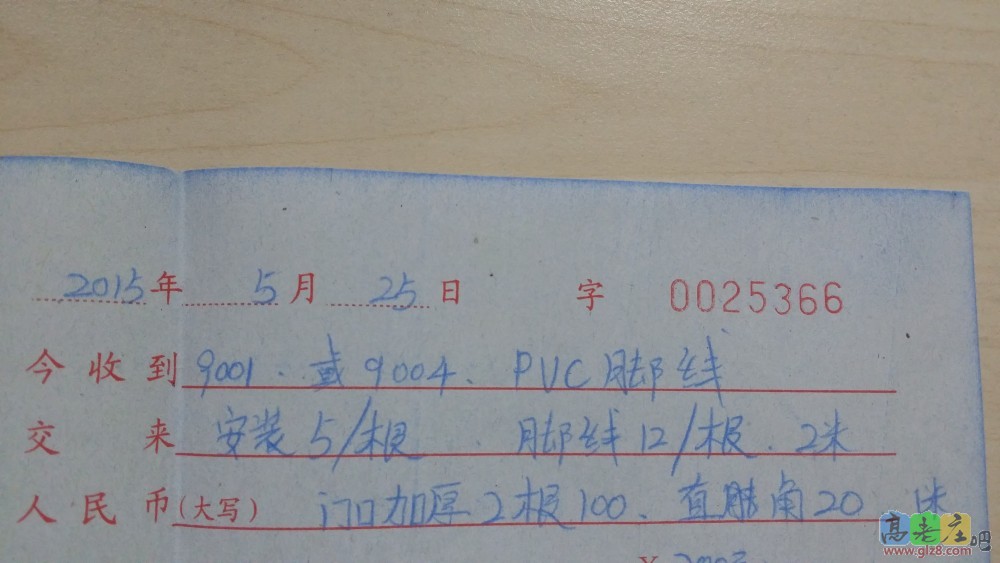 2015年 5月 25日 字 0025366
今收到 9001、或9004、PVC脚线
交来 安装5/根 、脚线12/根、2米
人民币(大写) 门口加厚2根100、直 角20 1米
¥
高老庄吧
www.glz8.com